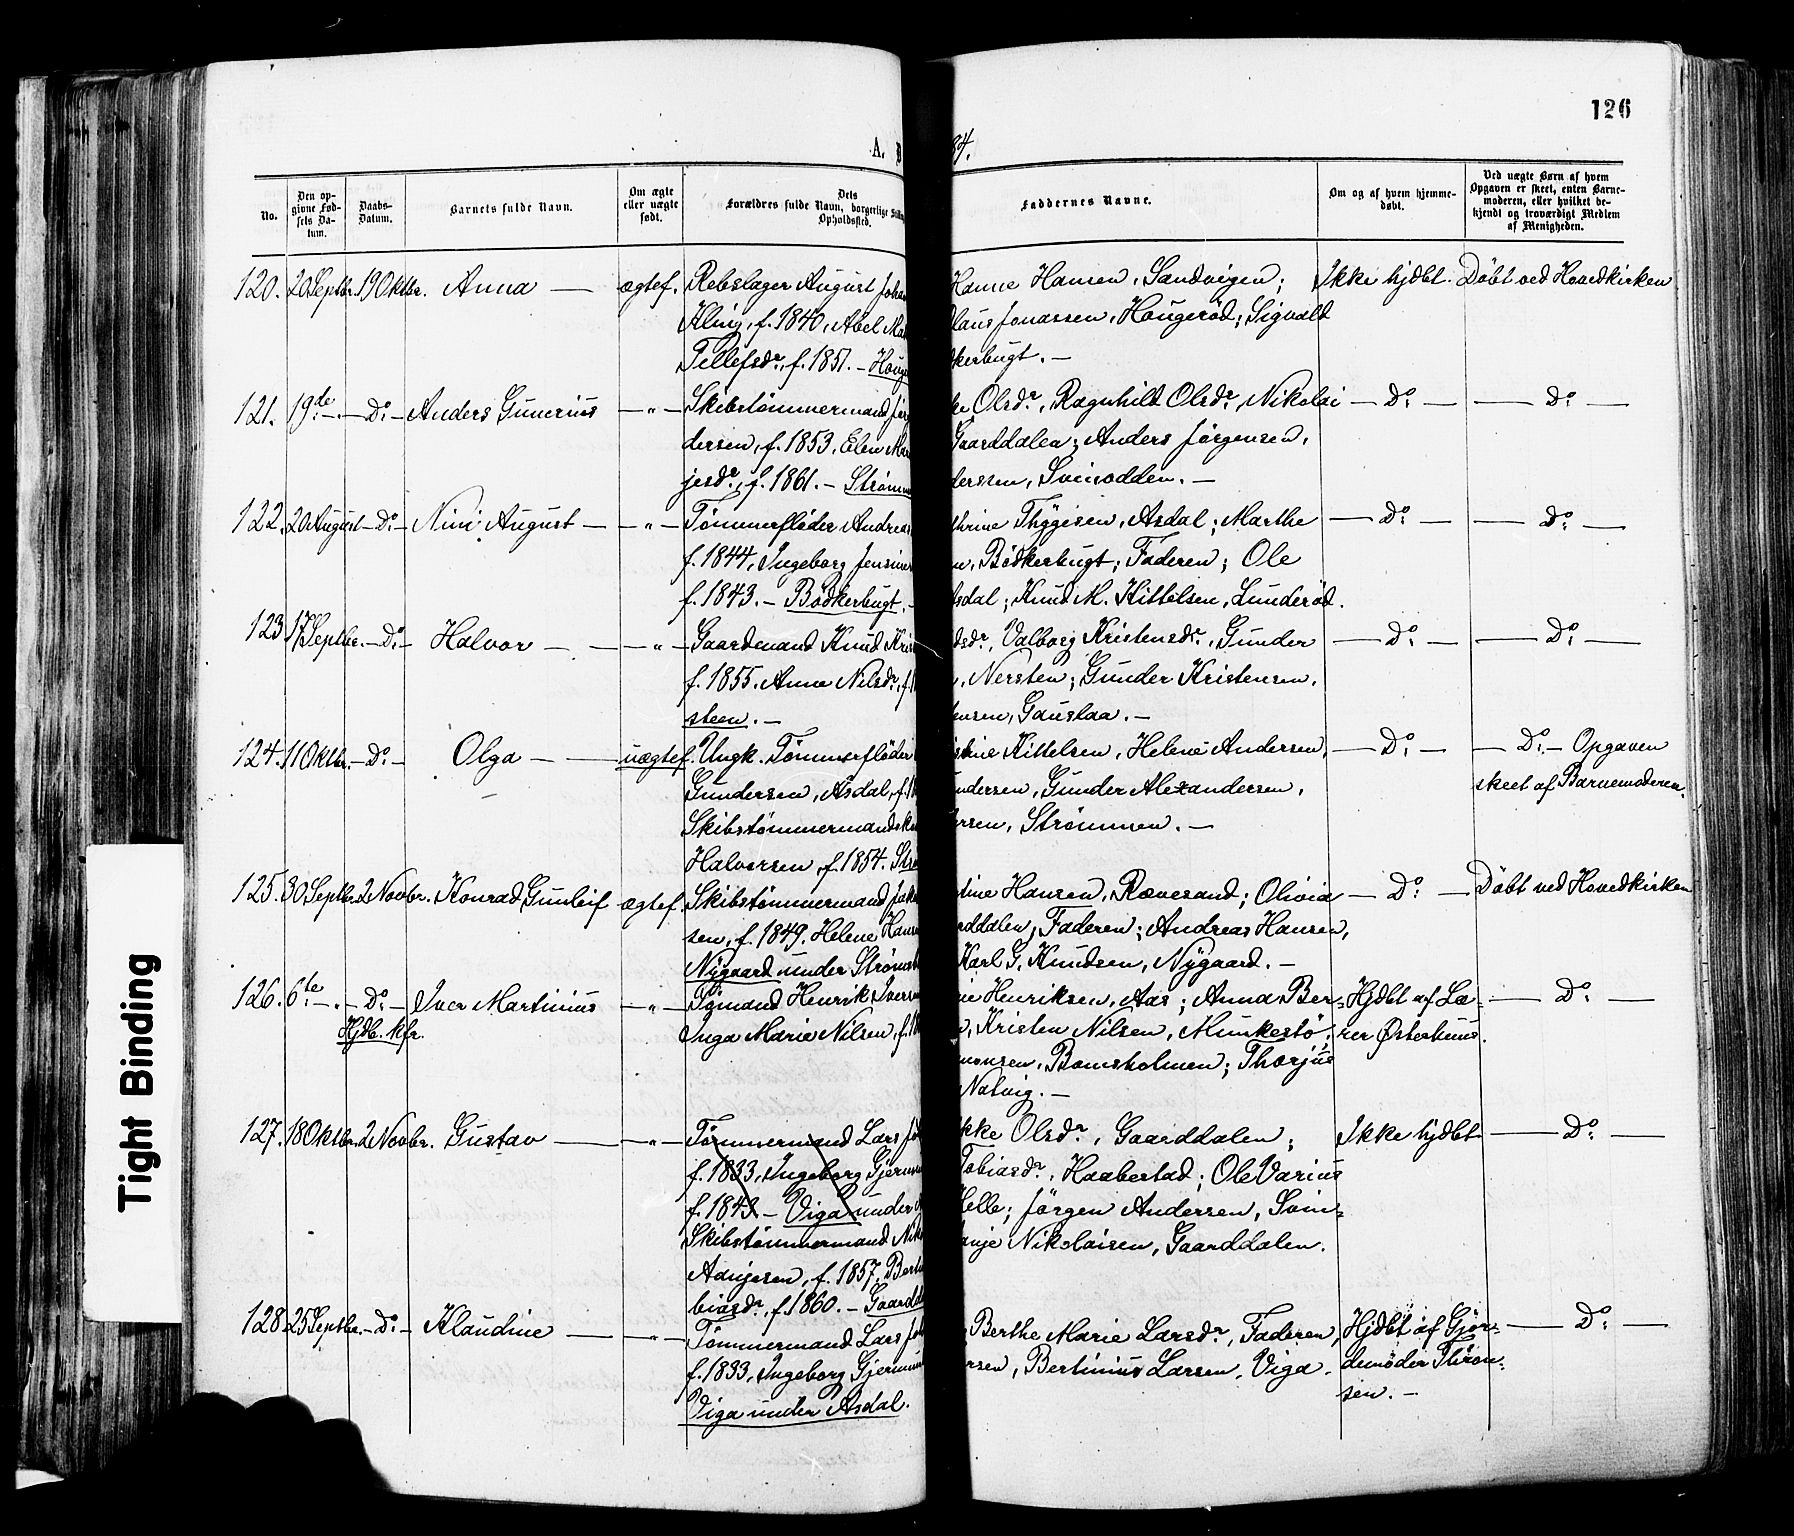 126
A.
84.
No.
Den op-
givne Fød-
sels Da-
tum.
Daabs-
Datum.
Barnets fulde Navn.
Om ægte
eller uægte
født.
Dels
Forældres fulde Navn, borgerlige
Opholdssted.
Faddernes Navne.
Om og af hvem hjemme-
døbt.
Ved uægte Børn af hvem
Opgaven er skeet, enten Barne-
moderen, eller hvilket be-
kjendt og troværdigt Medlem
af Menigheden.
120. 20 Septbr. 19 Oktbr. Anna — ægtef. Rebslager August Joha
Kling, f. 1840, Abel Ma
Tellefsdr., f. 1851. — Houge
Hanne Hansen, Sandvigen;
laus Jonassen, Hougerød; Sigvald
kerbugt. —
Ikke hjdbt. Døbt ved Hovedkirken
121. 19de — Do. — Anders Gunerius — " — Skibstømmermand Jørg
dersen, f. 1853, Elen Mar
jesdr., f. 1861. — Strømm
ke Olsdr., Ragnhild Olsdr., Nikolai
Gaarddalen; Anders Jørgensen,
derssen, Svinodden. —
— Do. — — Do. —
122. 20 August — Do. — Nini August — " — Tømmerfløder Andreas
f. 1844, Ingeborg Jensine
f. 1843. — Bødkerbugt. —
thrine Thygesen, Asdal; Marthe
n, Bødkerbugt; Faderen; Ole
sdal; Knud M. Kittelsen, Lunderød.
— Do. — — Do. —
123. 17 Septbr. — Do. — Halvor — " — Gaardmand Knud Kris
f. 1855. Anne Nilsdr., f.
steen. —
dsdr., Valborg Kristensdr., Gunder
, Nersten; Gunder Kristensen,
ensen, Gauslaa. —
— Do. — — Do. —
124. 11 Oktbr. — Do. — Olga — uægtef. Ungk. Tømmerfløder
Gundersen, Asdal, f. 18
Skibstømmermandsk
Halvorsen, f. 1854. Strø
stine Kittelsen, Helene Andersen,
undersen, Gunder Alexandersen,
ersen, Strømmen. —
— Do. — — Do. — Opgaven
skeet af Barnemoderen.
125. 30 Septbr. 2 Novbr. Konrad Gunleif ægtef. Skibstømmermand Jak
sen, f. 1849, Helene Hans
Nygaard under Strøms
tine Hansen, Rævesand; Olivia
rddalen; Faderen; Andreas Hansen,
Karl G. Knudsen, Nygaard. —
— Do. — Døbt ved Hovedkirken
126. 6te — Do. — Iver Martinius — " — Sømand Henrik Ivers
Hjdb. kfr.
Inga Marie Nilsen, f. 18
ie Henriksen, Aas; Anna Ber-
, Kristen Nilsen, Munkestø;
monsen, Bomsholmen; Thorjus
Natvig. —
Hjdbt af Læ-
rer Østerhuus.
— Do. —
127. 18 Oktbr. 2 Novbr. Gustav — " — Tømmermand Lars Jo
f. 1833, Ingeborg Gjermun
f. 1843. — Viga under
Skibstømmermand Nik
Adnjesen, f. 1857, Berth
biasdr., f. 1860. — Gaardd
kke Olsdr., Gaarddalen;
Tobiasdr., Haabestad; Ole Varius
Helle; Jørgen Andersen, Svin-
anje Nikolaisen, Gaarddalen.
Ikke hjdbt — Do. —
128. 25 Septbr. — Do. — Klaudine — " — Tømmermand Lars Joh
f. 1833, Ingeborg Gjermun
Viga under Asdal.
Berthe Marie Larsdr., Faderen,
rsen, Bertinius Larsen, Viga.
Hjdbt af Gjor-
demoder Thron-
sen. —
— Do. —
Tight Binding